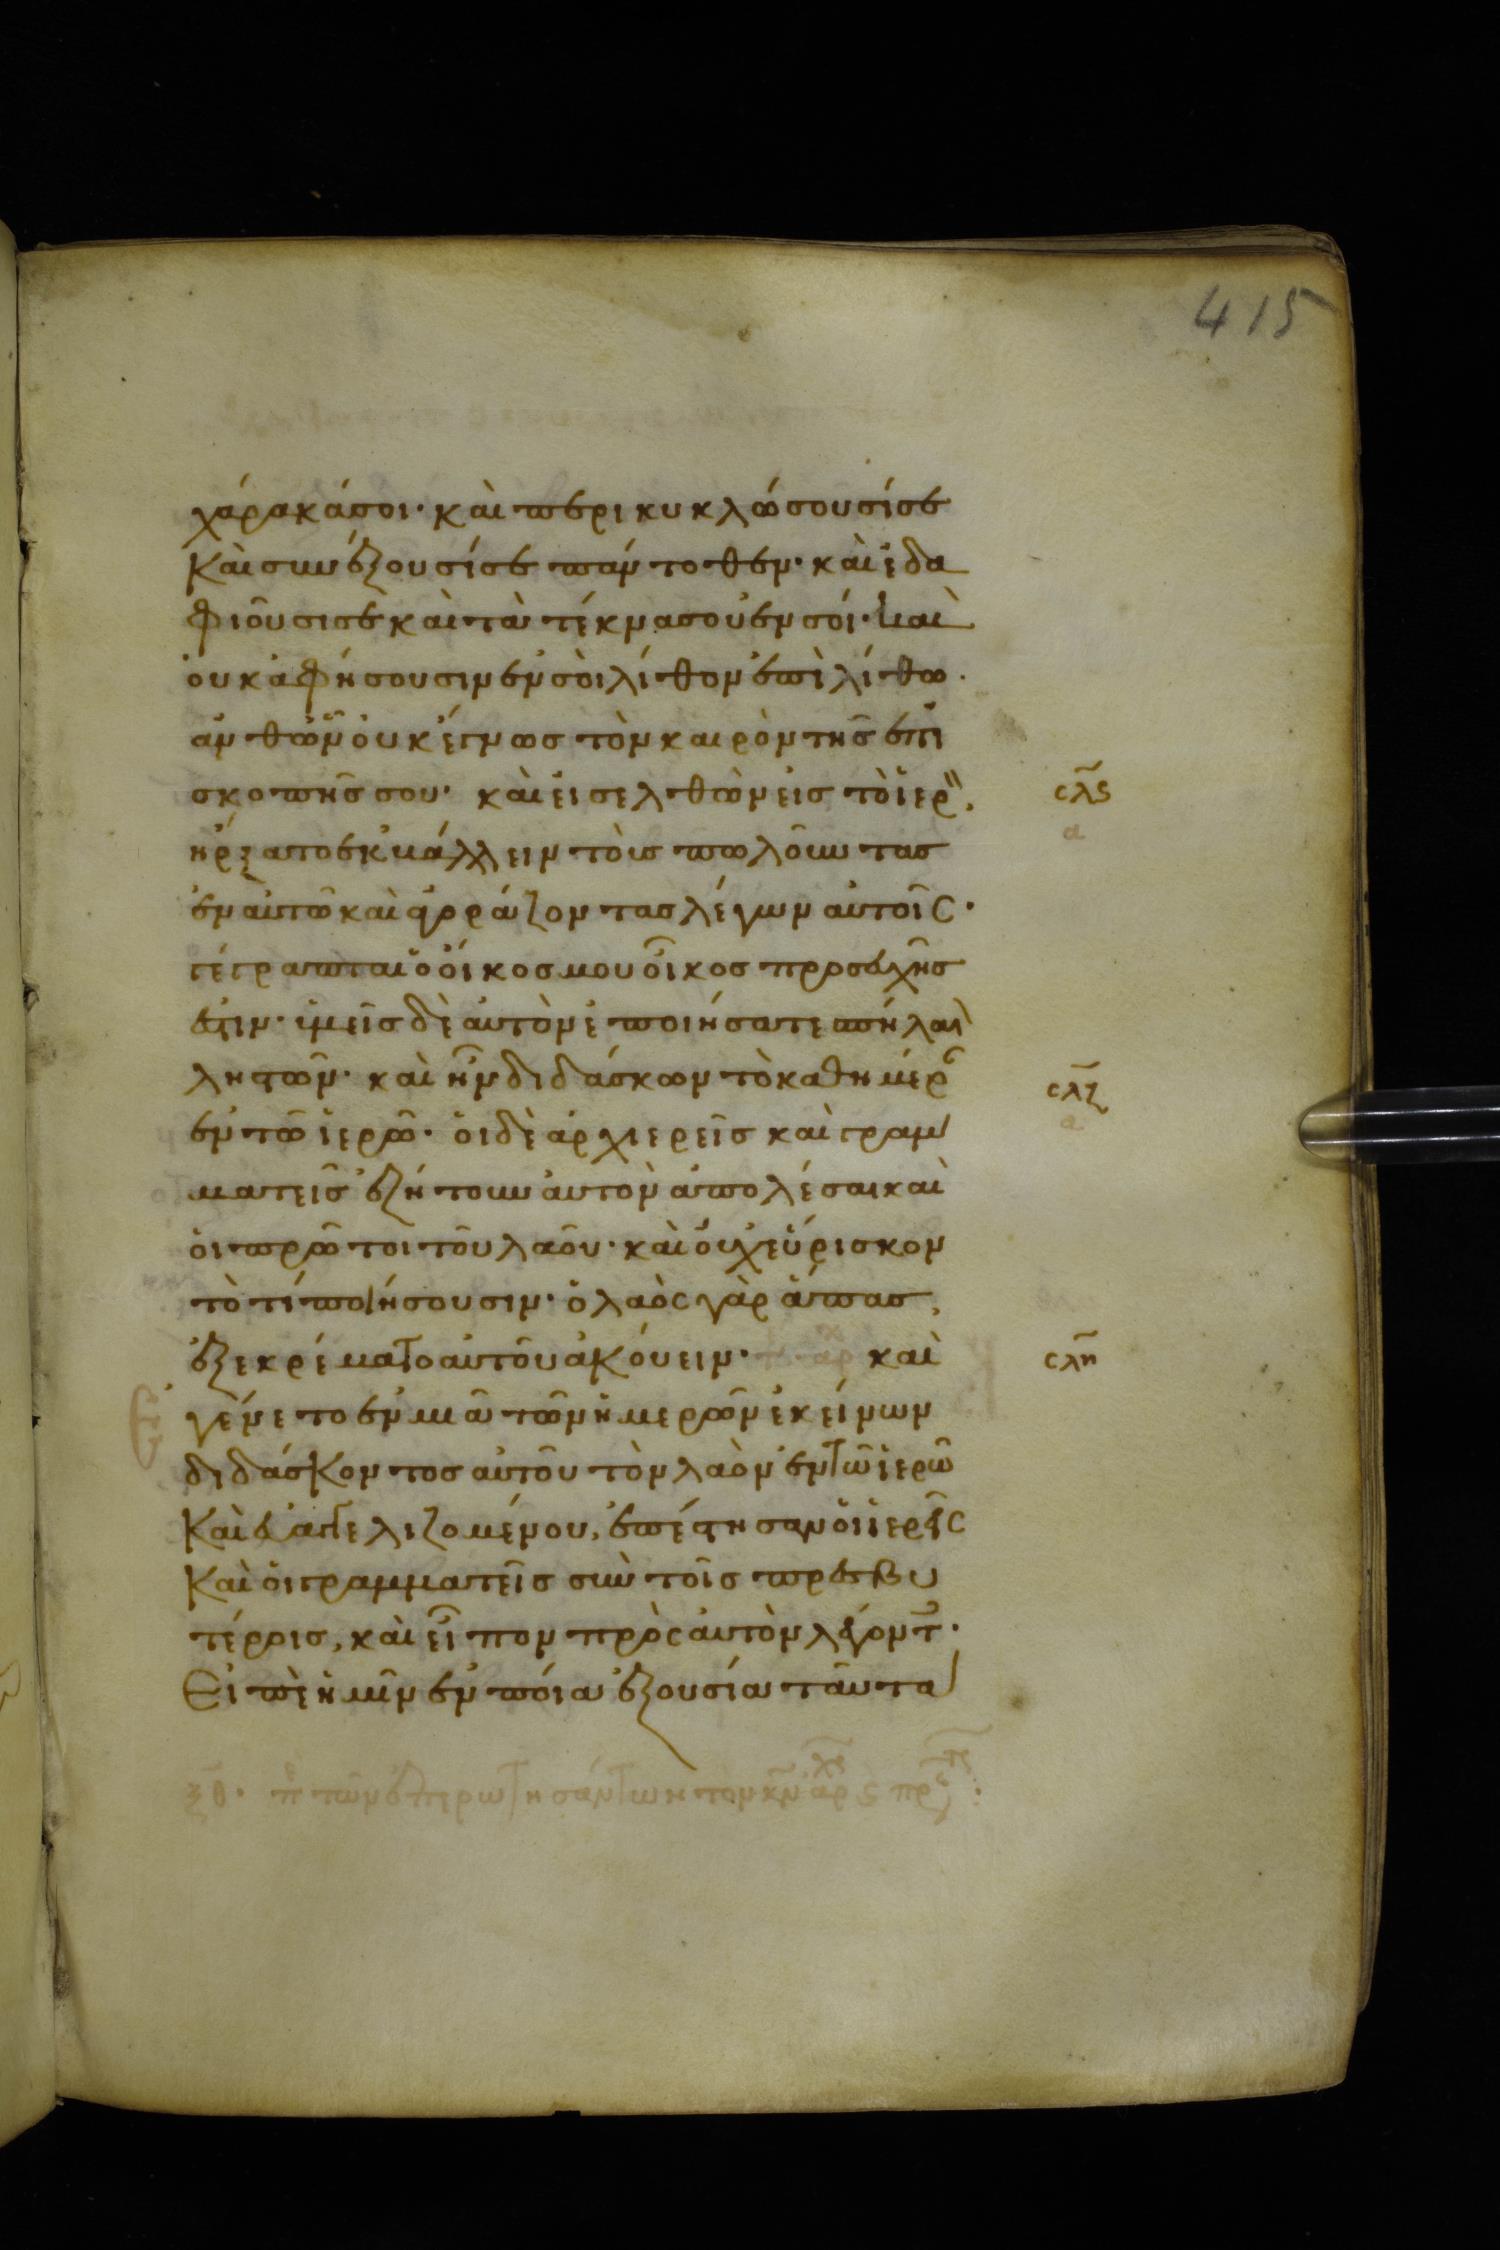 415
χάρακά σοι· καὶ περικυκλώσουσί σε
Καὶ συνέξουσί σε πάντοθεν· καὶ ἐδα
φιοῦσι σὲ καὶ τὰ τέκνα σοῦ ἐν σοί· καὶ
οὐκ ἀφήσουσιν ἐν σοὶ λίθον ἐπὶ λίθω·
ἀνθῶν οὐκ ἔγνωσ τὸν καιρὸν τῆσ ἐπι
σκοπῆσ σου· καὶ εἰσελθὼν εἰσ τὸ ἱερ
ἤρξατο ἐκβάλλειν τοὺσ πωλοῦντασ
ἐν αὐτῶ καὶ ἀγοράζοντασ λέγων αὐτοῖς·
γέγραπται ὁ οἶκοσ μου οἶκοσ προσευχῆσ
ἐστιν· ὑμεῖσ δὲ αὐτὸν ἐποιήσατε σπήλαι
ληστῶν· καὶ ἦν διδάσκων τὸ καθημέρ
ἐν τῶ ἱερῶ· οἱ δὲ ἀρχιερεῖσ καὶ γραμ
ματεῖσ ἐζήτουν αὐτὸν ἀπολέσαι καὶ
οἱ πρῶτοι τοῦ λαοῦ· καὶ οὐχ εὕρισκον
τὸ τί ποιήσουσιν· ὁ λαὸς γὰρ ἅπασ
ἐξεκρέματο αὐτοῦ ἀκούειν· καὶ
ἐγένετο ἐν μιᾶ τῶν ἡμερῶν ἐκείνων
διδάσκοντοσ αὐτοῦ τὸν λαὸν ἐν τῶ ἱερῶ
Καὶ εὐαγγελιζομένου, ἐπέστησαν οἱ ἱερεῖς
Καὶ οἱ γραμματεῖσ σὺν τοῖσ πρεσβυ
τέροισ, καὶ εἶπον πρὸς αὐτὸν λέγοντ·
Εἰπὲ ἡμῖν ἐν ποία ἐξουσία ταῦτα
ξθ· π τῶν ἐπερωτησάντων τὸν κν ἀρχ ς πρς
ςλς
α
ςλζ
α
ςλη